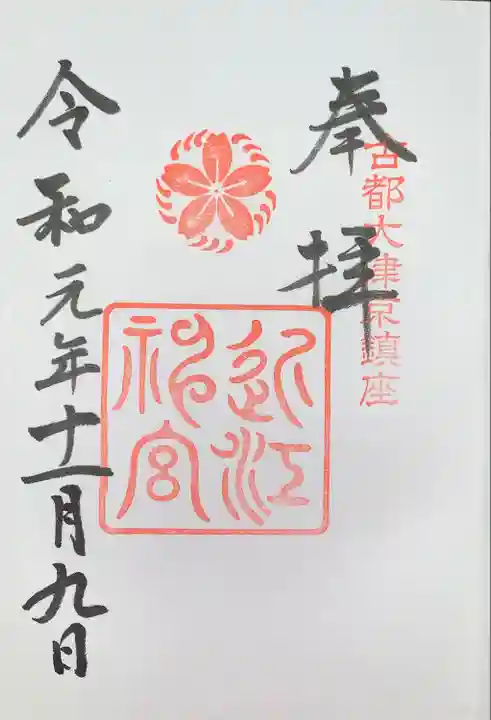 奉拝
古都大津京鎮座
近江
神宮
令和元年十一月九日